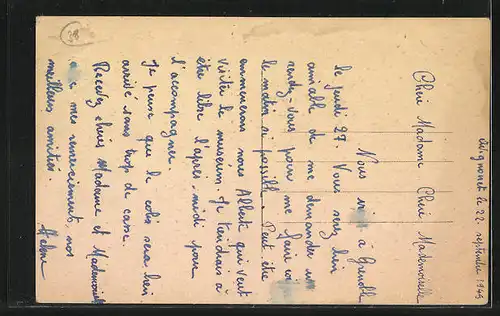 Avignonet le 22 septembre 1949
Chère Madame Chère Mademoiselle
Nous à Grenoble
le jeudi 27 Vous serez bien
aimable de me demander un
rendez-vous pour me faire
le matin si possible. Peut être
emmenerons nous Albert qui veut
visiter le muséum. Je tiendrais à
être libre l'après-midi pour
l'accompagner.
Je pense que le colis sera bien
arrivé sans trop de casse.
Recevez chères Madame et Mademoiselle
mes remerciements, nos
meilleures amitiés.